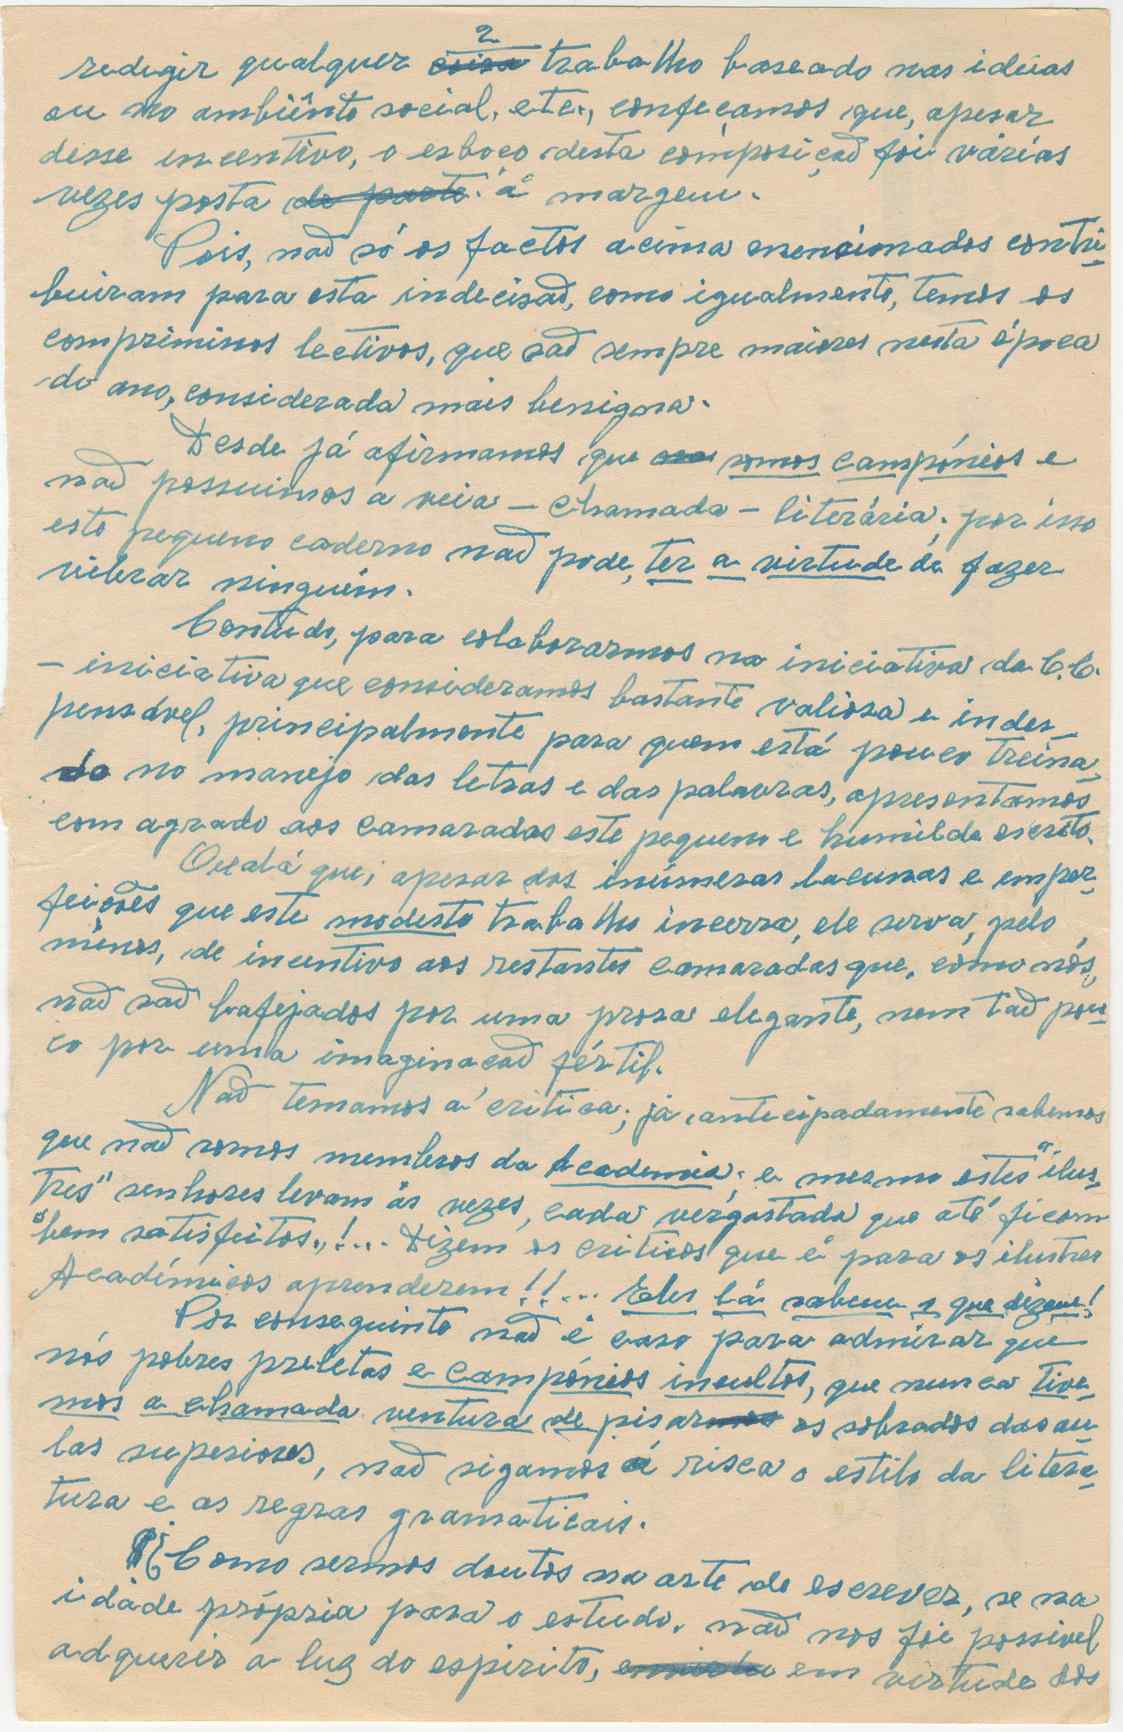 2
redigir qualquer coisa trabalho baseado nas ideias
ou no ambiênte social, etc., confeçamos que, apesar
desse incentivo, o esboço desta composição foi várias
vezes posta de parte à margem.
Pois, não só os factos acima mencionados contri-
buiram para esta indecisão, como igualmente, temos os
comprimissos lectivos, que são sempre maiores nesta época
do ano, considerada mais benigna.
Desde já afirmamos que somos campónios e
não possuimos a veia — chamada — literária; por isso
este pequeno caderno não pode, ter a virtude de fazer
vibrar ninguém.
Contudo, para colaborarmos na iniciativa da C.C.
— iniciativa que consideramos bastante valiosa e indes-
pensável, principalmente para quem está pouco treina-
do no manejo das letras e das palavras, apresentamos
com agrado aos camaradas este pequeno e humilde escrito.
Oxalá que, apesar das inúmeras lacunas e imper-
feições que este modesto trabalho incerra, ele serva, pelo
menos, de incentivo aos restantes camaradas que, como nós,
não são bafejados por uma prosa elegante, nem tão pou-
co por uma imaginação fértil.
Não temamos a crítica; já antecipadamente sabemos
que não somos membros da Academia; e mesmo estes "ilus-
tres" senhores levam às vezes, cada vergastada que até ficam
bem satisfeitos..!... Dizem os criticos que é para os ilustres
Académicos aprenderem!!... Eles lá sabem o que dizem!
Por conseguinte não é caso para admirar que
nós pobres proletas e campónios incultos, que nunca tive-
mos a chamada ventura de pisarmos os sobrados das au-
las superiores, não sigamos á risca o estilo da litera-
tura e as regras gramaticais.
Como sermos doutos na arte de escrever, se na
idade própria para o estudo, não nos foi possivel
adquerir a luz do espirito, em virtude dos